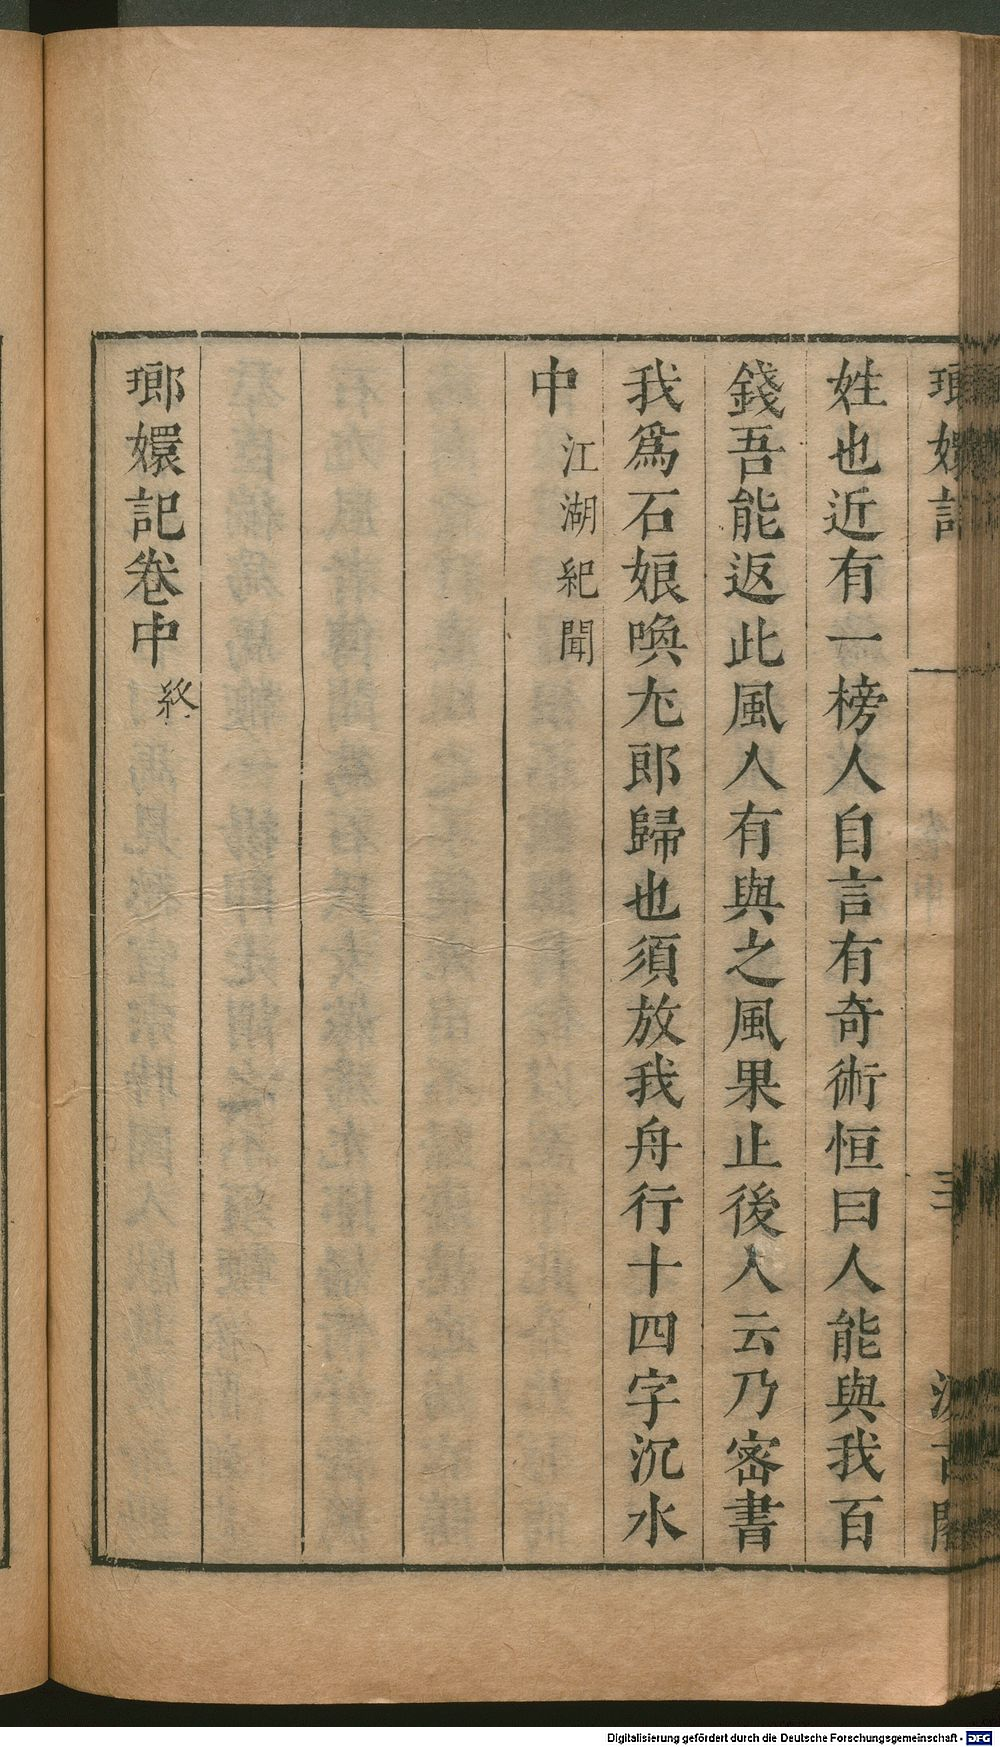 嫏嬛記
三
姓也近有一榜人自言有奇術恒曰人能與我百
錢吾能返此風人有與之風果止後人云乃密書
我爲石娘喚尢郎歸也須放我舟行十四字沉水
中江湖紀聞
瑯嬛記卷中終
Digitalisierung gefördert durch die Deutsche Forschungsgemeinschaft - DFG